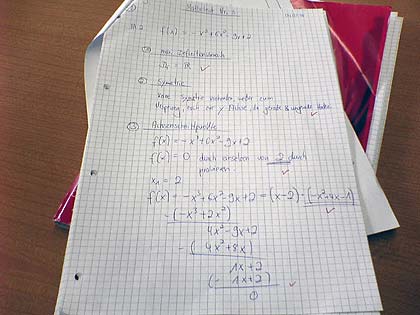 f(x) = -x³+6x²-9x+2
① max. Definitionsbereich
= ℝ ✓
② Symetrie
keine Symetrie vorhanden, weder zum
Ursprung, noch zur y Achse, da gerade & ungerade ✓
③ Achsenschnittpunkte
f(x) = -x³+6x²-9x+2
f(x) = 0 durch einsetzen von 2 durch
probieren. ✓
x₁ = 2
f(x) = -x³+6x²-9x+2 = (x-2)·(-x²+4x-1)
-(-x³+2x²) ✓
4x²-9x+2
-( 4x²+8x)
1x+2
(- 1x+2) ✓
0